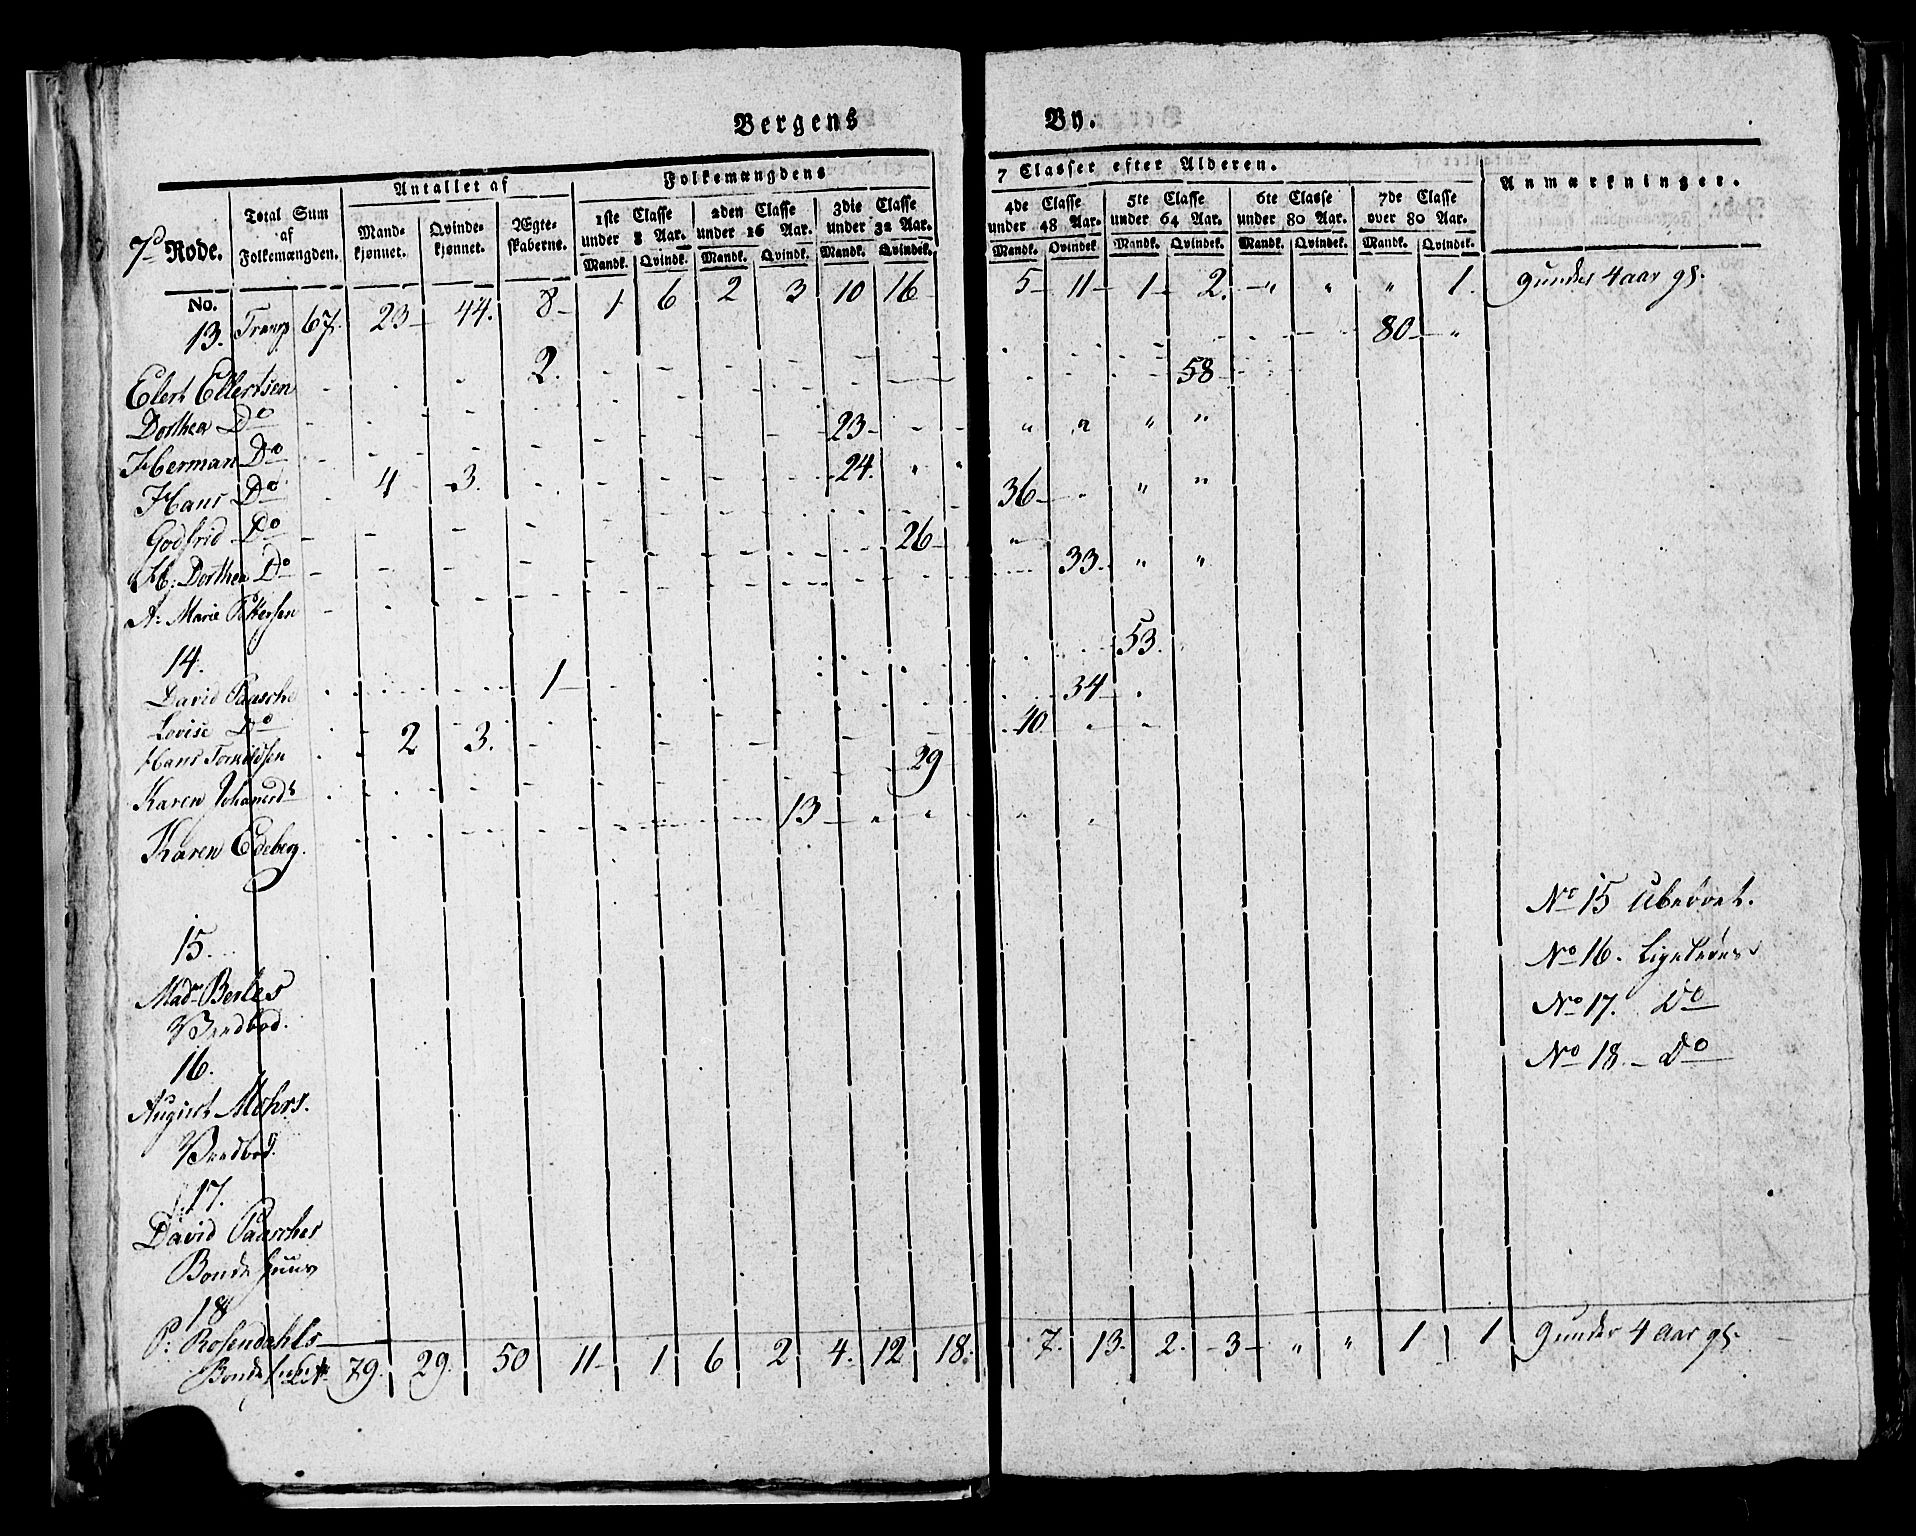 Bergens By.
7de Rode.
Total Sum af Folkemængden.
Antallet af
Mandkjønnet.
Qvindekjønnet.
Ægteskaberne.
Folkemængdens 7 Classer efter Alderen.
1ste Classe under 8 Aar.
2den Classe under 16 Aar.
3die Classe under 32 Aar.
4de Classe under 48 Aar.
5te Classe under 64 Aar.
6te Classe under 80 Aar.
7de Classe over 80 Aar.
Anmærkninger.
Mandk. Qvindk. Mandk. Qvindk. Mandk. Qvindek. Mandk. Qvindek. Mandk. Qvindek. Mandk. Qvindek. Mandk. Qvindek.
No.
13. Transp 67. 23 44. 8 1 6 2 3 10 16 5 11 1 2. " " " 1. 9 under 4 aar gl.
Elert Ellertsen 80 "
Dorthea Do 2. 58
Herman Do 23 " " " "
Hans Do 24. " "
Godfrid Do 4 3. 36 " " "
H: Dorthea Do 26 "
A: Marie Pettersen 33. " "
14.
David Paasche 53.
Lovise Do 1 34
Hans Tormodsen 40
Karen Johansd 2 3. 29
Karen Edeberg. 13 " " " "
15.
Madm Berles
Vandbod.
No 15 Ubeboet.
16.
August Mohrs.
Vandbod.
No 16. Ligeledes
17.
David Paasches
Bondehuus
No 17. Do
18
P: Rosendahls
Bondehuus
No 18. Do
79. 29. 50 11 1 6 2 4. 12 18. 7. 13. 2. 3 " " 1 1 9 under 4 Aar gl.